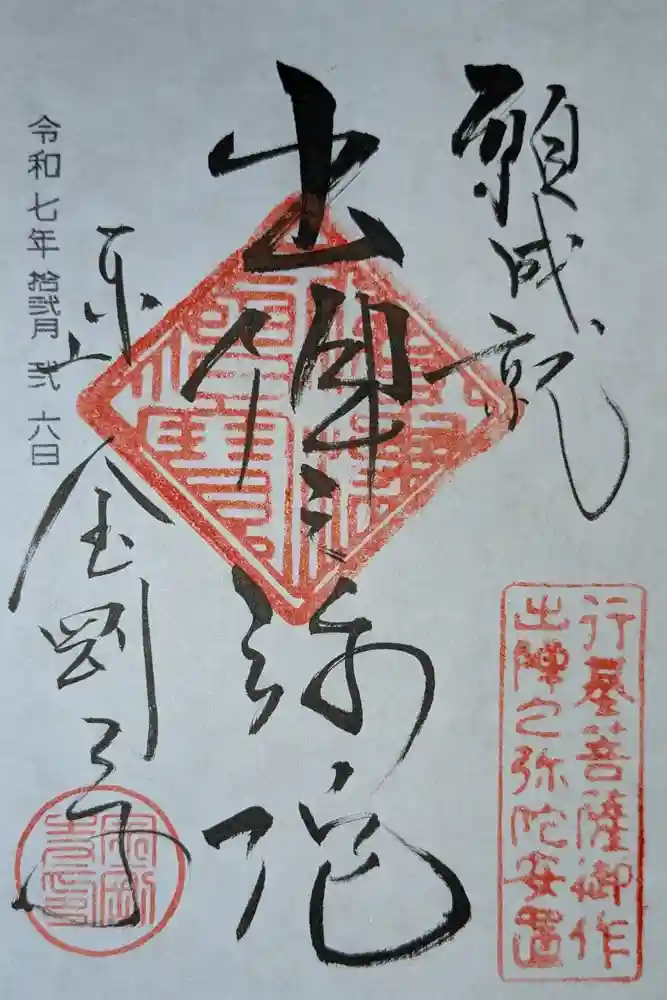 願成就
行基菩薩御作
出陣之弥陀安置
出陣之弥陀
東山
金剛寺
令和七年 拾弐月 弐 六日